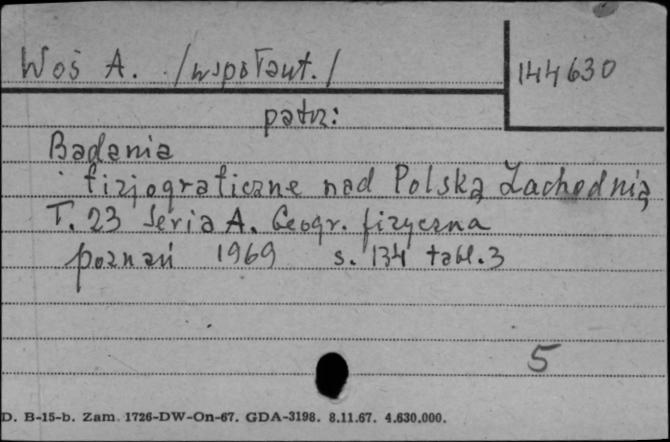 Woś A. /współaut./ 144630
patrz:
Badania
fizjograficzne nad Polską Zachodnią
T. 23 Seria A. Geogr. fizyczna
poznań 1969 s. 134 tabl. 3
5
D. B-15-b. Zam. 1726-DW-On-67. GDA-3198. 8.11.67. 4.630.000.